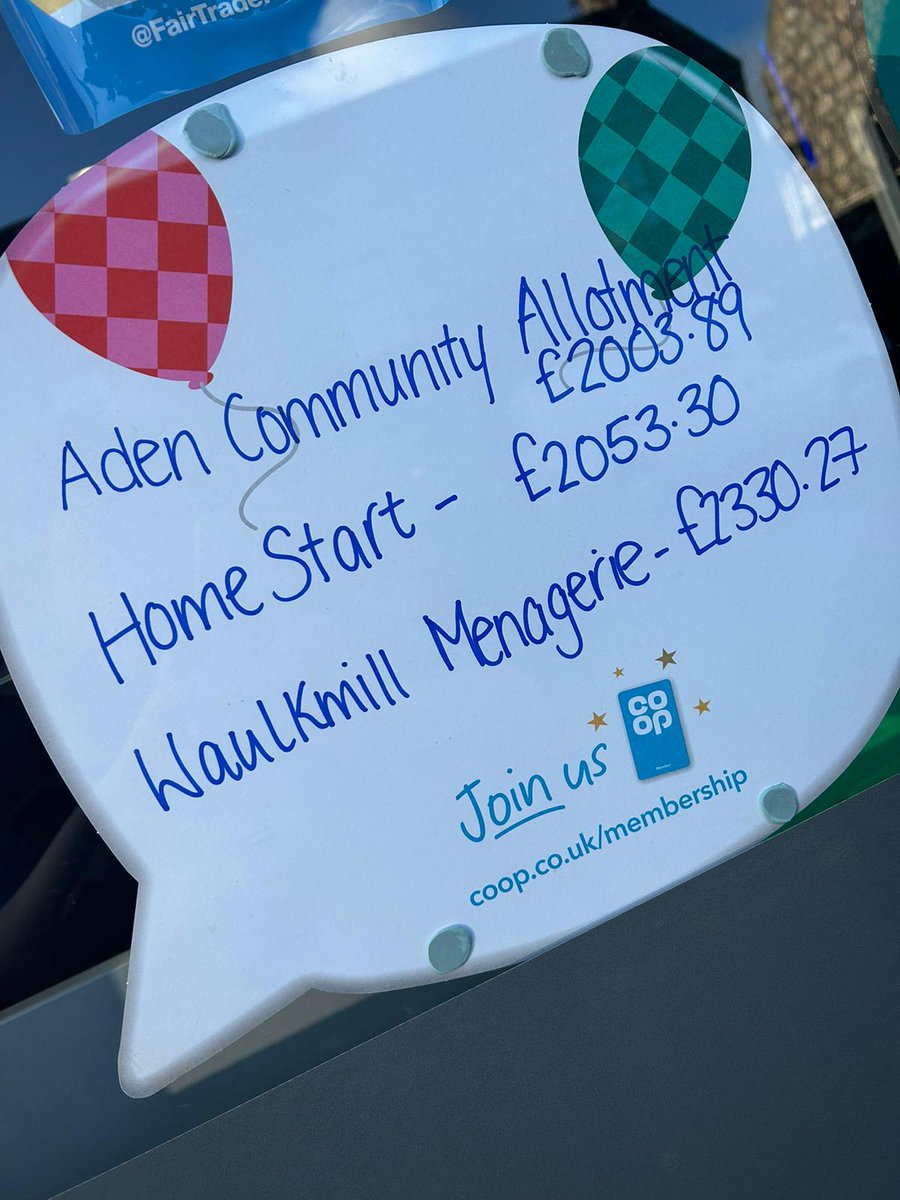 @FairTrade
Aden Community Allotment
£2003.89
HomeStart - £2053.30
Waulkmill Menagerie - £2330.27
Join us
co
op
coop.co.uk/membership